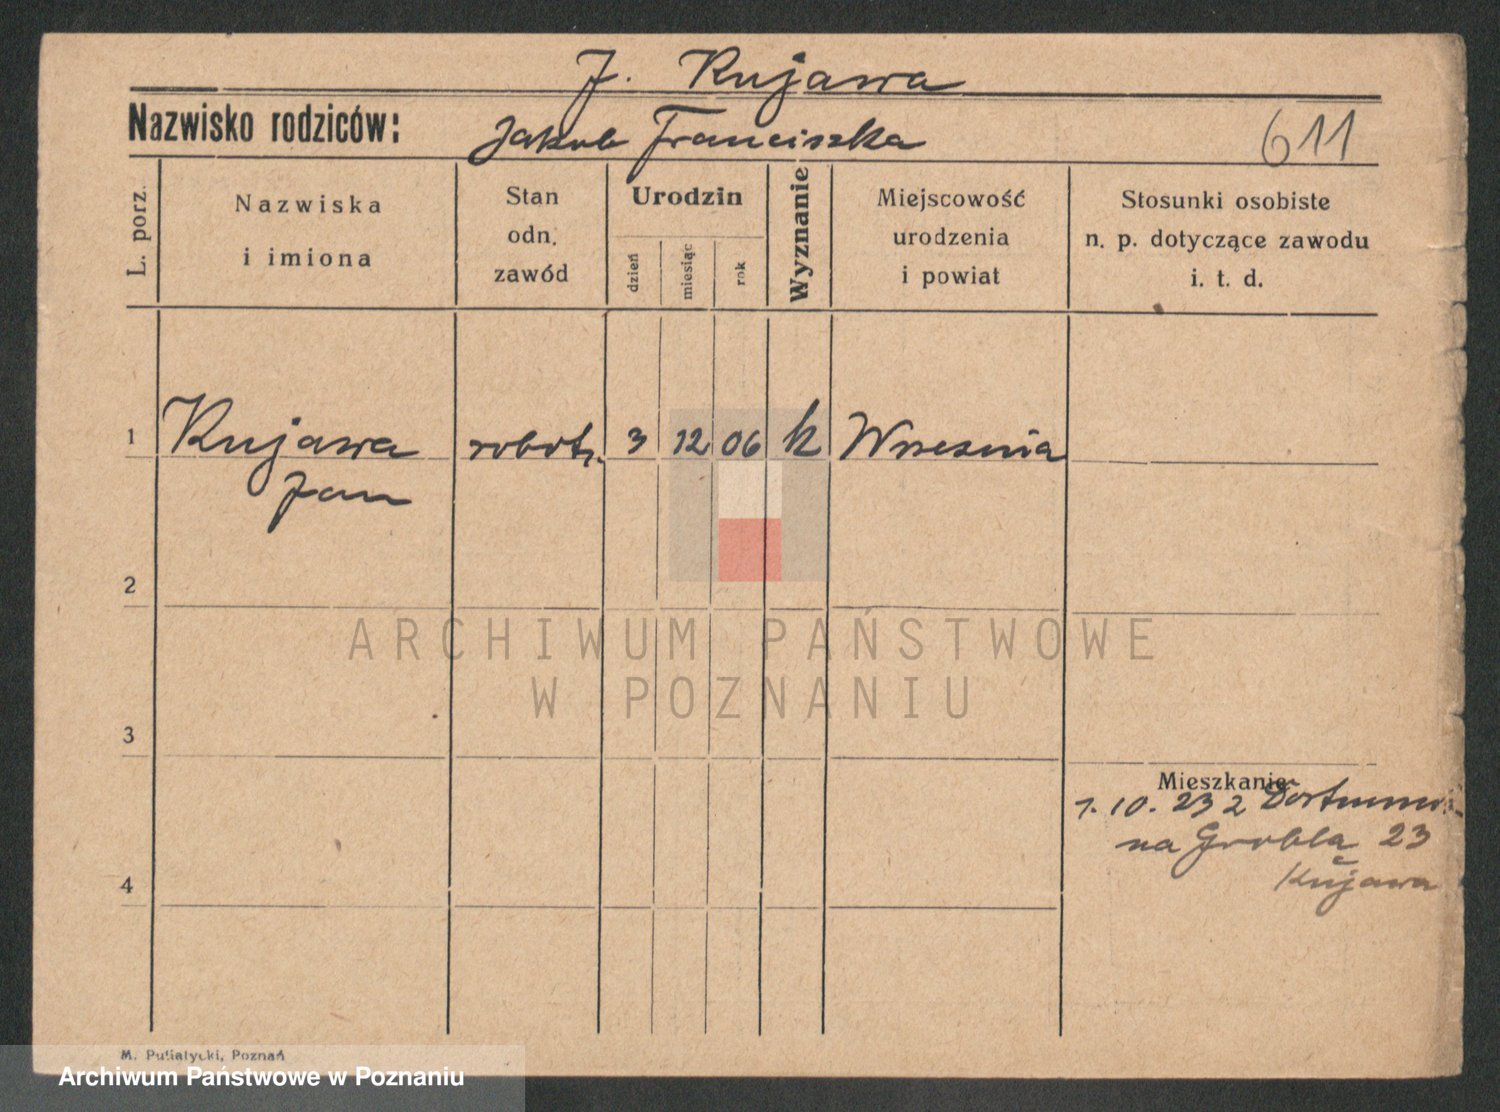 J. Kujawa
Nazwisko rodziców: Jakub Franciszka 611
L. porz. Nazwiska i imiona Stan odn. zawód Urodzin dzień miesiąc rok Wyznanie Miejscowość urodzenia i powiat Stosunki osobiste n. p. dotyczące zawodu i. t. d.
1 Kujawa robotn. 3 12 06 k Wrzesnia
Jan
2
ARCHIWUM PAŃSTWOWE
W POZNANIU
3
Mieszkanie
1. 10. 23 z
na Grobla 23
Kujawa
4
M. Putiatycki, Poznań
Archiwum Państwowe w Poznaniu